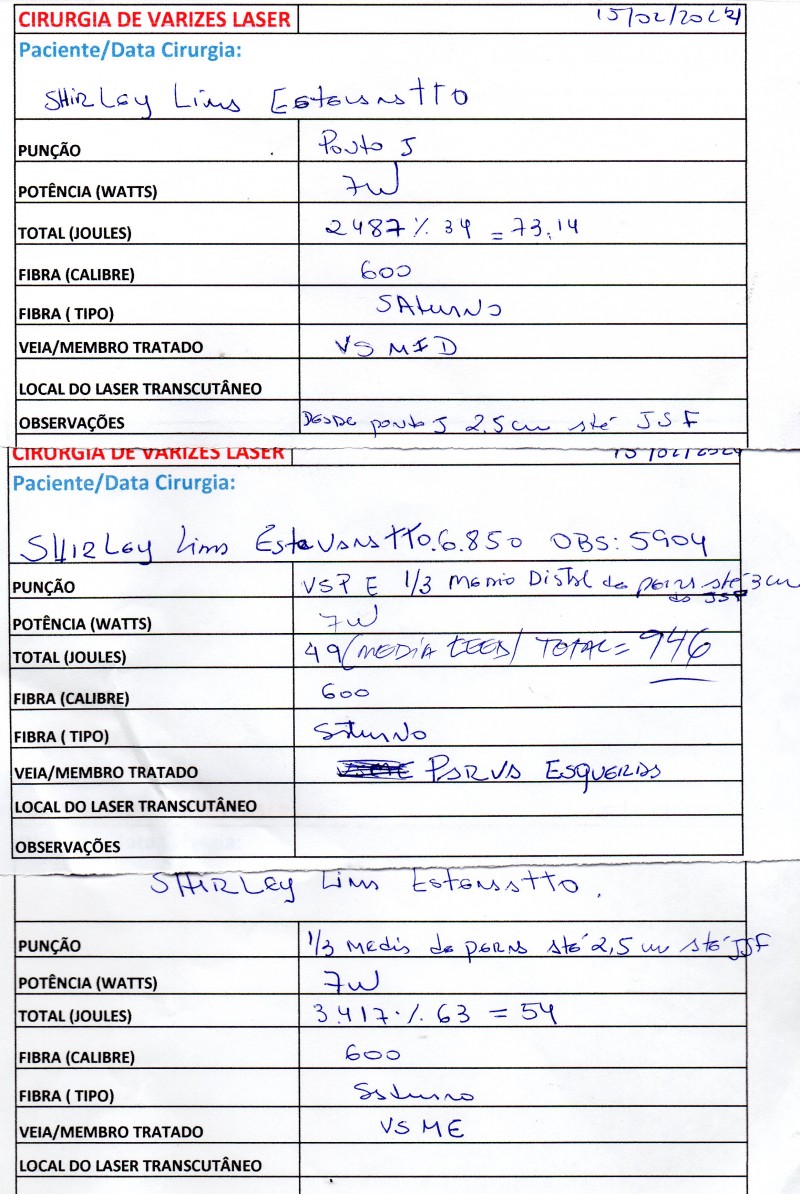 CIRURGIA DE VARIZES LASER 15/02/2024
Paciente/Data Cirurgia:
SHIRLEY Lims Estevanatto
PUNÇÃO Ponto J
POTÊNCIA (WATTS) 7W
TOTAL (JOULES) 2487 ٪ 34 = 73,14
FIBRA (CALIBRE) 600
FIBRA ( TIPO) SAturno
VEIA/MEMBRO TRATADO VS MID
LOCAL DO LASER TRANSCUTÂNEO
OBSERVAÇÕES DESDE ponto J 2.5 cm até JSF
CIRURGIA DE VARIZES LASER 15/02/2024
Paciente/Data Cirurgia:
SHIRLEY Lims Estevanatto.6.850 OBS: 5904
PUNÇÃO VSP E 1/3 Medio Distal da perna até 3 cm
da JSP
POTÊNCIA (WATTS) 7W
TOTAL (JOULES) 49 (MEDIA LEED) TOTAL = 946
FIBRA (CALIBRE) 600
FIBRA ( TIPO) Saturno
VEIA/MEMBRO TRATADO PARVA ESQUERDA
LOCAL DO LASER TRANSCUTÂNEO
OBSERVAÇÕES
SHIRLEY Lims Estevanatto.
PUNÇÃO 1/3 Medio da perna até 2,5 cm até JSF
POTÊNCIA (WATTS) 7W
TOTAL (JOULES) 3.417 ٪ 63 = 54
FIBRA (CALIBRE) 600
FIBRA ( TIPO) Saturno
VEIA/MEMBRO TRATADO VS ME
LOCAL DO LASER TRANSCUTÂNEO